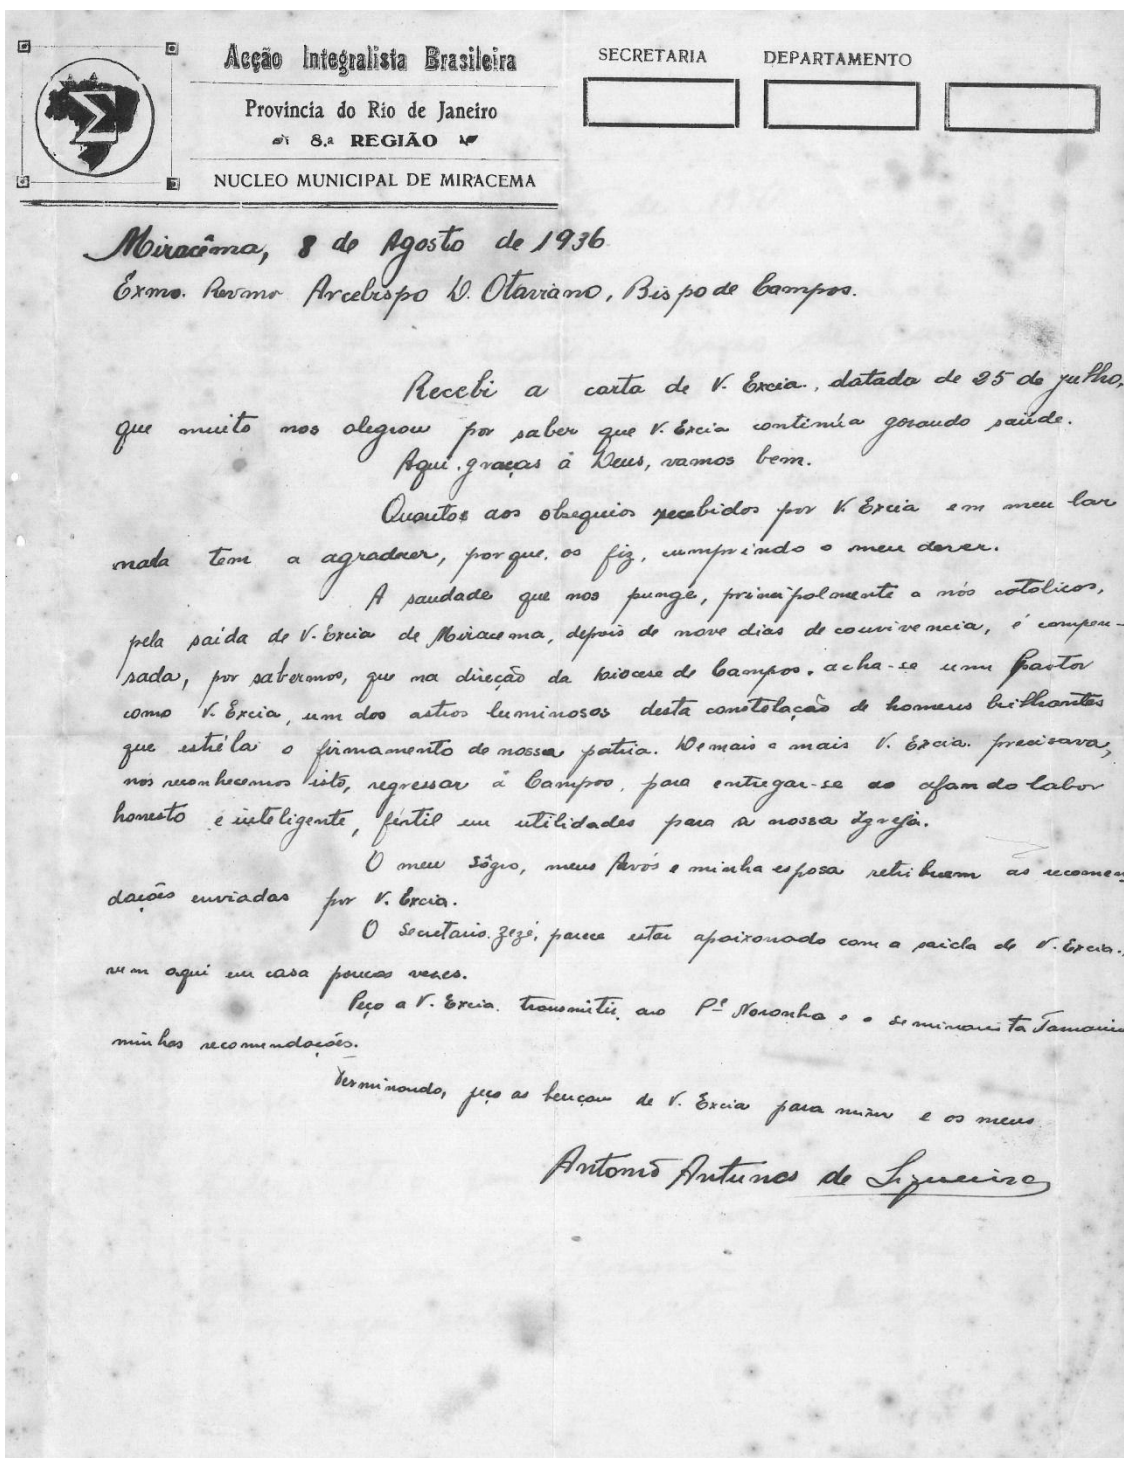 Acção Integralista Brasileira
Provincia do Rio de Janeiro
8.ª REGIÃO
NUCLEO MUNICIPAL DE MIRACEMA
SECRETARIA DEPARTAMENTO
Miracêma, 8 de Agosto de 1936
Exmo. Revmo Arcebispo D. Otaviano, Bispo de Campos.
Recebi a carta de V. Excia., datada de 25 de julho,
que muito nos alegrou por saber que V. Excia continúa gosando saúde.
Aqui, graças á Deus, vamos bem.
Quantos aos obsequios recebidos por V. Excia em meu lar
nada tem a agradecer, porque, os fiz, cumprindo o meu dever.
A saudade que nos punge, principalmente a nós catolicos,
pela saída de V. Excia de Miracema, depois de nove dias de convivencia, é compen-
sada, por sabermos, que na direção da Diocese de Campos, acha-se um Pastor
como V. Excia, um dos astros luminosos desta constelação de homens brilhantes
que estréla o firmamento de nossa patria. Demais e mais V. Excia. precisava,
nós reconhecemos isto, regressar á Campos, para entregar-se ao afan do labor
honesto e inteligente, fértil em utilidades para a nossa Igreja.
O meu sôgro, meus Avós e minha esposa retribuem as recomen
dações enviadas por V. Excia.
O Secretario Zezé, parece estar apaixonado com a saida de V. Excia.,
vem aqui em casa poucas vezes.
Peço a V. Excia. transmitir, ao Pe Noronha e o seminarista
minhas recomendações.
Terminando, peço as bençam de V. Excia para mim e os meus
Antonio Antunes de Siqueira